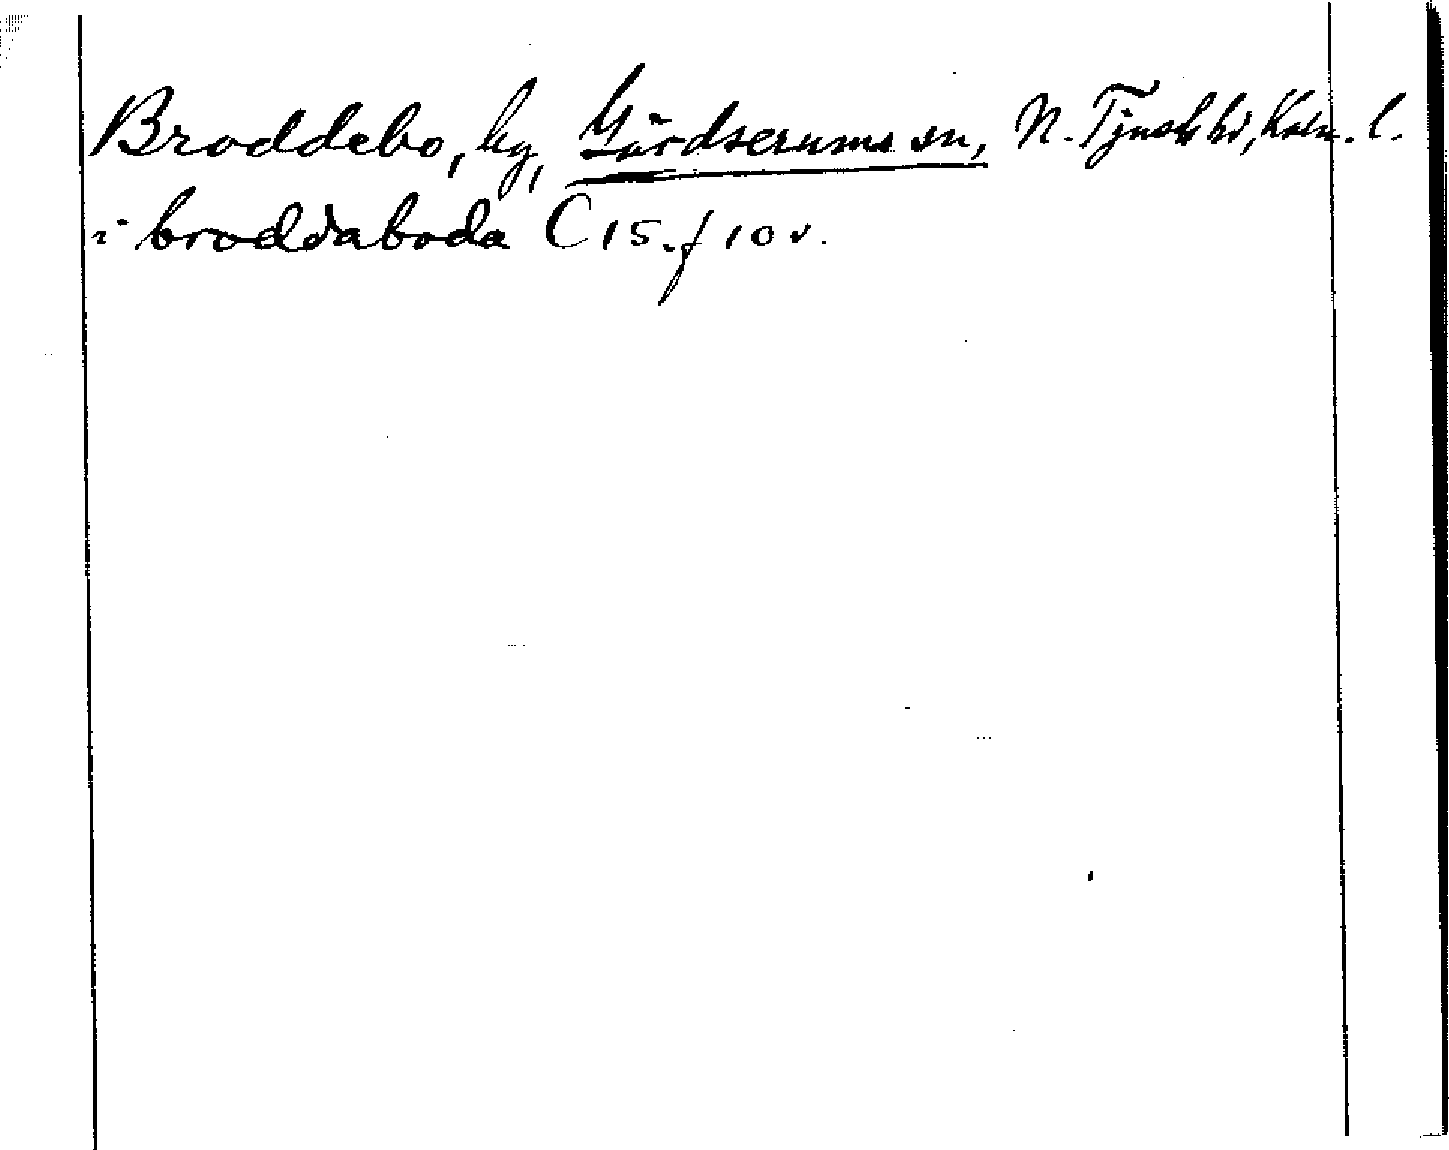 Broddebo, hg, Gärdserums sn, N. Tjust hd, Kalm. l.
i broddaboda C 15. f 10 v.